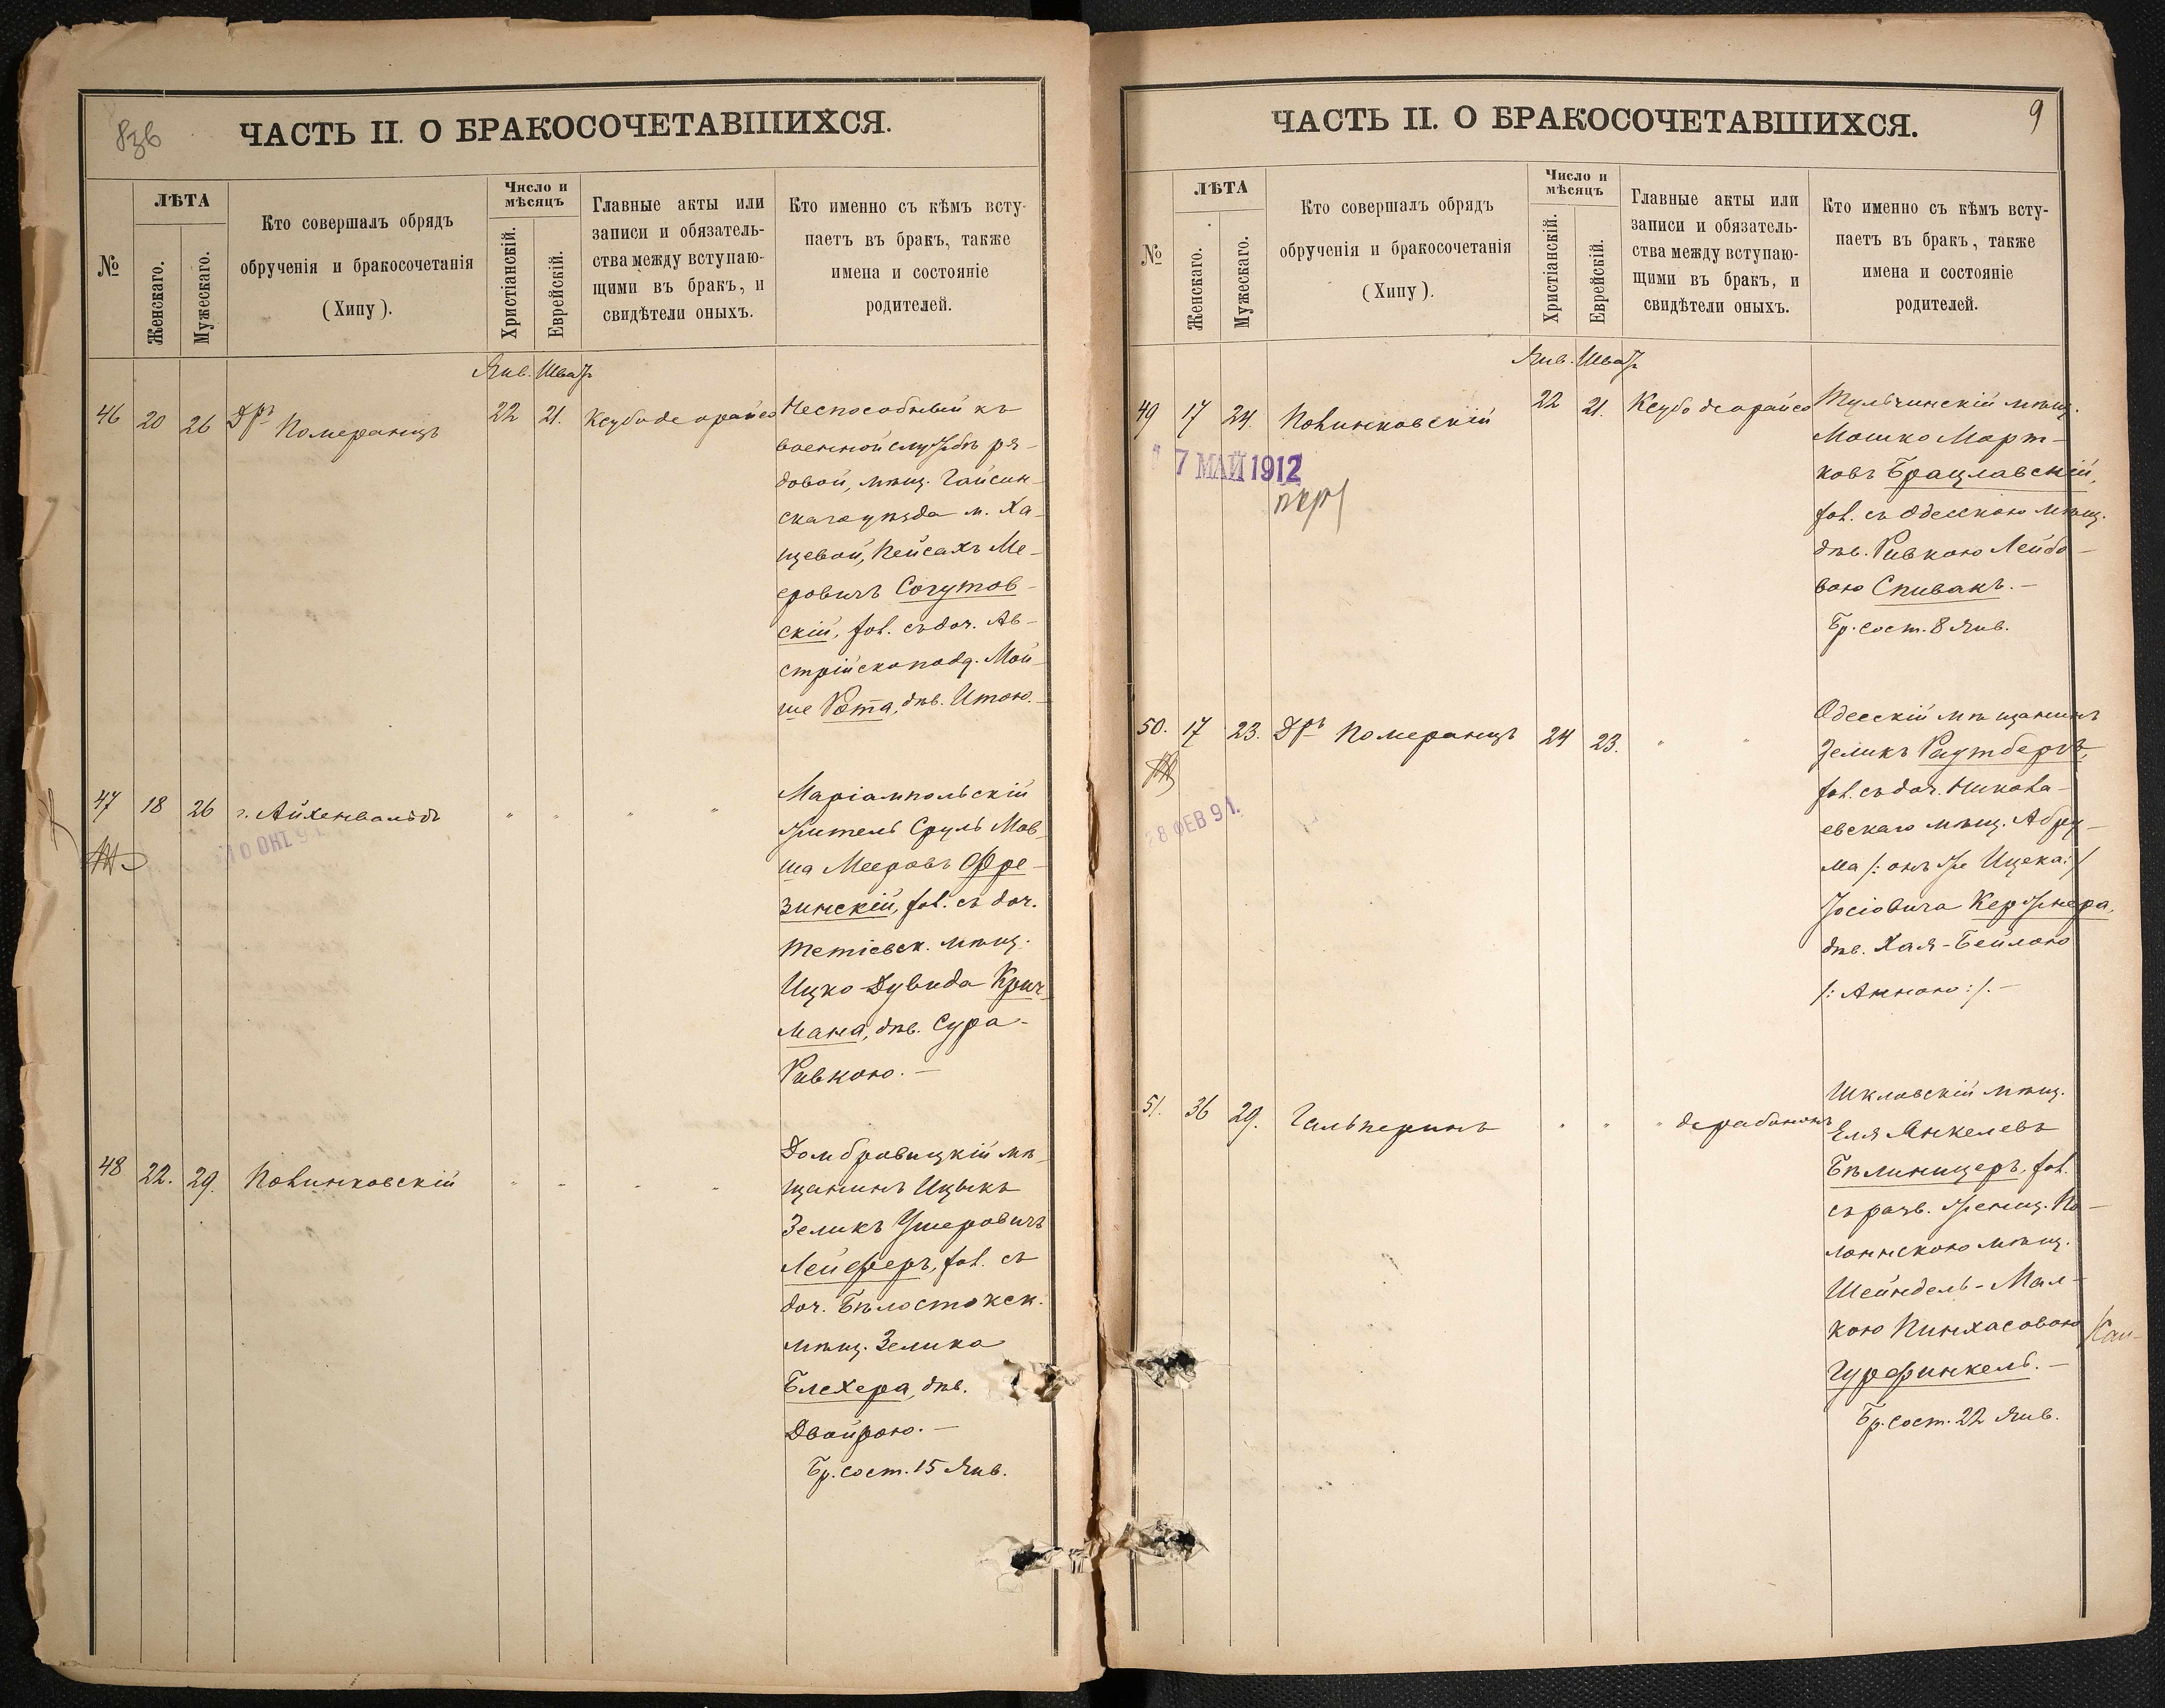 ЧАСТЬ II. О БРАКОСОЧЕТАВШИХСЯ.
№
ЛѢТА
Женскаго.
Мужескаго.
Кто совершалъ обрядъ
обрученія и бракосочетанія
(Хипу).
Число и
мѣсяцъ
Христіанскій.
Еврейскій.
Главные акты или
записи и обязатель-
ства между вступаю-
щими въ бракъ, и
свидѣтели оныхъ.
Кто именно съ кѣмъ всту-
паетъ въ бракъ, также
имена и состояніе
родителей.
Янв. Шват
46 20 26 Дръ Померанцъ 22 21. Ксубо деорайсо
Неспособный къ
военной службѣ ря-
довой, мѣщ. Гайсин-
скаго уѣзда м. Ха-
щевой, Пейсахъ Ме-
еровичъ Согутов-
скій, хол. съ доч. Ав-
стрійскоподд. Мой-
ше Рота, дѣв. Итою.—
47 18 26 г. Айхенвальдъ " " " "
10 ОКТ 91
Маріампольскій
житель Сруль Мов-
ша Мееровъ Фре-
зинскій, хол. съ доч.
Тетіевск. мѣщ.
Ицко-Дувида Крич-
мана, дѣв. Сура-
Ривкою.—
48 22. 29. Полинковскій " " " "
Домбровицкій мѣ-
щанинъ Ицыкъ
Зеликъ Ушеровичъ
Лейферъ, хол. съ
доч. Бѣлостокск.
мѣщ. Зелика
Блехера, дѣв.
Двойрою.—
Бр. сост. 15 Янв.
ЧАСТЬ II. О БРАКОСОЧЕТАВШИХСЯ.
9
№
ЛѢТА
Женскаго.
Мужескаго.
Кто совершалъ обрядъ
обрученія и бракосочетанія
(Хипу).
Число и
мѣсяцъ
Христіанскій.
Еврейскій.
Главные акты или
записи и обязатель-
ства между вступаю-
щими въ бракъ, и
свидѣтели оныхъ.
Кто именно съ кѣмъ всту-
паетъ въ бракъ, также
имена и состояніе
родителей.
Янв. Шват
49 17 24. Полинковскій 22 21. Ксубо деорайсо
7 МАЙ 1912
Тульчинскій мѣщ.
Мошко Морт-
ковъ Брацлавскій,
хол. съ Одесскою мѣщ.
дѣв. Ривкою Лейбо-
вою Спивакъ.—
Бр. сост. 8 Янв.
50. 17 23. Дръ Померанцъ 24 23. " "
8 ФЕВ 91.
Одесскій мѣщанинъ
Зеликъ Раутбергъ,
хол. съ доч. Никола-
евскаго мѣщ. Абру-
ма /: онъ же Ицека :/
Іосіовича Кержнера,
дѣв. Хая-Бейлою
/: Анною :/.—
51. 36 29. Гальперинъ " " " дерабонон
Шкловскій мѣщ.
Еля Янкелевъ
Бѣлиницеръ, хол.
съ разв. женщ. По-
лоннскою мѣщ.
Шейндель-Мал-
кою Пинхасовою
Гурфинкель.—
Бр. сост. 22 Янв.